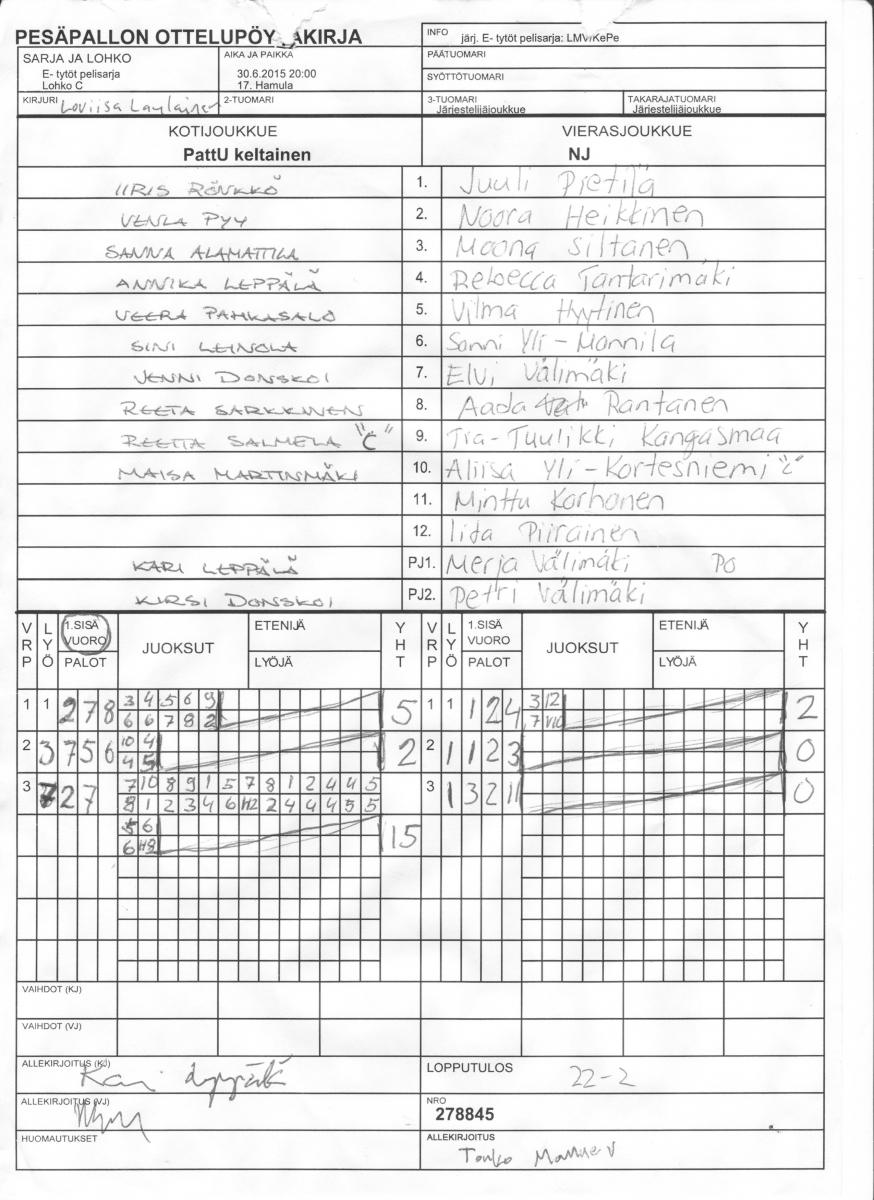 PESÄPALLON OTTELUPÖY AKIRJA
INFO järj. E- tytöt pelisarja: LMV/KePe
SARJA JA LOHKO
E- tytöt pelisarja
Lohko C
AIKA JA PAIKKA
30.6.2015 20:00
17. Hamula
PÄÄTUOMARI
SYÖTTÖTUOMARI
KIRJURI Loviisa Laulainen
2-TUOMARI
3-TUOMARI
Järjestelijäjoukkue
TAKARAJATUOMARI
Järjestelijäjoukkue
KOTIJOUKKUE
PattU keltainen
VIERASJOUKKUE
NJ
IIRIS RÖNKKÖ 1. Juuli Pietilä
VENLA PYY 2. Noora Heikkinen
SANNA ALAMATTILA 3. Moona Siltanen
ANNIKA LEPPÄLÄ 4. Rebecca Tantarimäki
VEERA PAHKASALO 5. Vilma Hyytinen
SINI LEINOLA 6. Sonni Yli-Monnila
VENNI DONSKOI 7. Elvi Välimäki
REETA SARKKINEN 8. Aada Rantanen
REETTA SALMELA "C" 9. Tia-Tuulikki Kangasmaa
MAISA MARTINMÄKI 10. Aliisa Yli-Kortesniemi "C"
11. Minttu Korhonen
12. Iida Piirainen
KARI LEPPÄLÄ PJ1. Merja Välimäki PO
KIRSI DONSKOI PJ2. Petri Välimäki
VRP LYÖ 1.SISÄ VUORO PALOT JUOKSUT ETENIJÄ LYÖJÄ YHT VRP LYÖ 1.SISÄ VUORO PALOT JUOKSUT ETENIJÄ LYÖJÄ YHT
1 1 2 7 8 3 4 5 6 9 5 1 1 1 2 4 3 12 2
6 6 7 8 2 7 V10
2 3 7 5 6 10 4 2 2 1 1 2 3 0
4 5
3 7 2 7 7 10 8 9 1 5 7 8 1 2 4 4 5 3 1 3 2 11 0
8 1 2 3 4 6 H2 2 4 4 4 5 5
5 6 15
6 H8
VAIHDOT (KJ)
VAIHDOT (VJ)
ALLEKIRJOITUS (KJ) Kari Leppälä
LOPPUTULOS 22-2
ALLEKIRJOITUS (VJ)
NRO
278845
HUOMAUTUKSET
ALLEKIRJOITUS